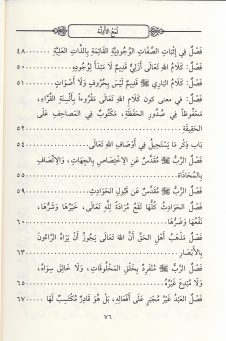 لُمَعُ الأَدِلَّةِ
فَصْلٌ فِي إِثْبَاتِ الصِّفَاتِ الوُجُودِيَّةِ القَائِمَةِ بِالذَّاتِ العَلِيَّةِ ٤٨
فَصْلٌ: كَلَامُ اللهِ تَعَالَى أَزَلِيٌّ قَدِيمٌ لَا مَبْدَأَ لِوُجُودِهِ ٥٠
فَصْلٌ: كَلَامُ البَارِي ﷻ قَدِيمٌ لَيْسَ بِحُرُوفٍ وَلَا أَصْوَاتٍ ٥١
فَصْلٌ: في معنى كون كَلَامِ اللهِ تَعَالَى مَقْرُوءاً بِأَلْسِنَةِ القُرَّاءِ،
مَحْفُوظاً فِي صُدُورِ الحَفَظَةِ، مَكْتُوبٌ فِي المَصَاحِفِ عَلَى
الحَقِيقَةِ ٥٢
بَابُ ذِكْرِ مَا يَسْتَحِيلُ فِي أَوْصَافِ اللهِ تَعَالَى ٥٤
فَصْلٌ: الرَّبُّ ﷻ مُقَدَّسٌ عَنِ الاِخْتِصَاصِ بِالجِهَاتِ، وَالاِتِّصَافِ
بِالمُحَاذَاةِ ٥٥
فَصْلٌ: الرَّبُّ ﷻ مُقَدَّسٌ عَنْ قَبُولِ الحَوَادِثِ ٥٩
فَصْلٌ: الحَوَادِثُ كُلُّهَا تَقَعُ مُرَادَةً لِلَّهِ تَعَالَى، خَيْرُهَا وَشَرُّهَا،
نَفْعُهَا وَضَرُّهَا ٦٠
فَصْلٌ: مَذْهَبُ أَهْلِ الحَقِّ أَنَّ اللهَ تَعَالَى يَجُوزُ أَنْ يَرَاهُ الرَّاءُونَ
بِالأَبْصَارِ ٦٣
فَصْلٌ: الرَّبُّ ﷻ مُتَفَرِّدٌ بِخَلْقِ المَخْلُوقَاتِ، وَلَا خَالِقَ سِوَاهُ،
وَلَا مُبْدِعَ غَيْرُهُ ٦٥
فَصْلٌ: العَبْدُ غَيْرُ مُجْبَرٍ عَلَى أَفْعَالِهِ، بَلْ هُوَ قَادِرٌ مُكْتَسِبٌ لَهَا ٦٧
٧٦